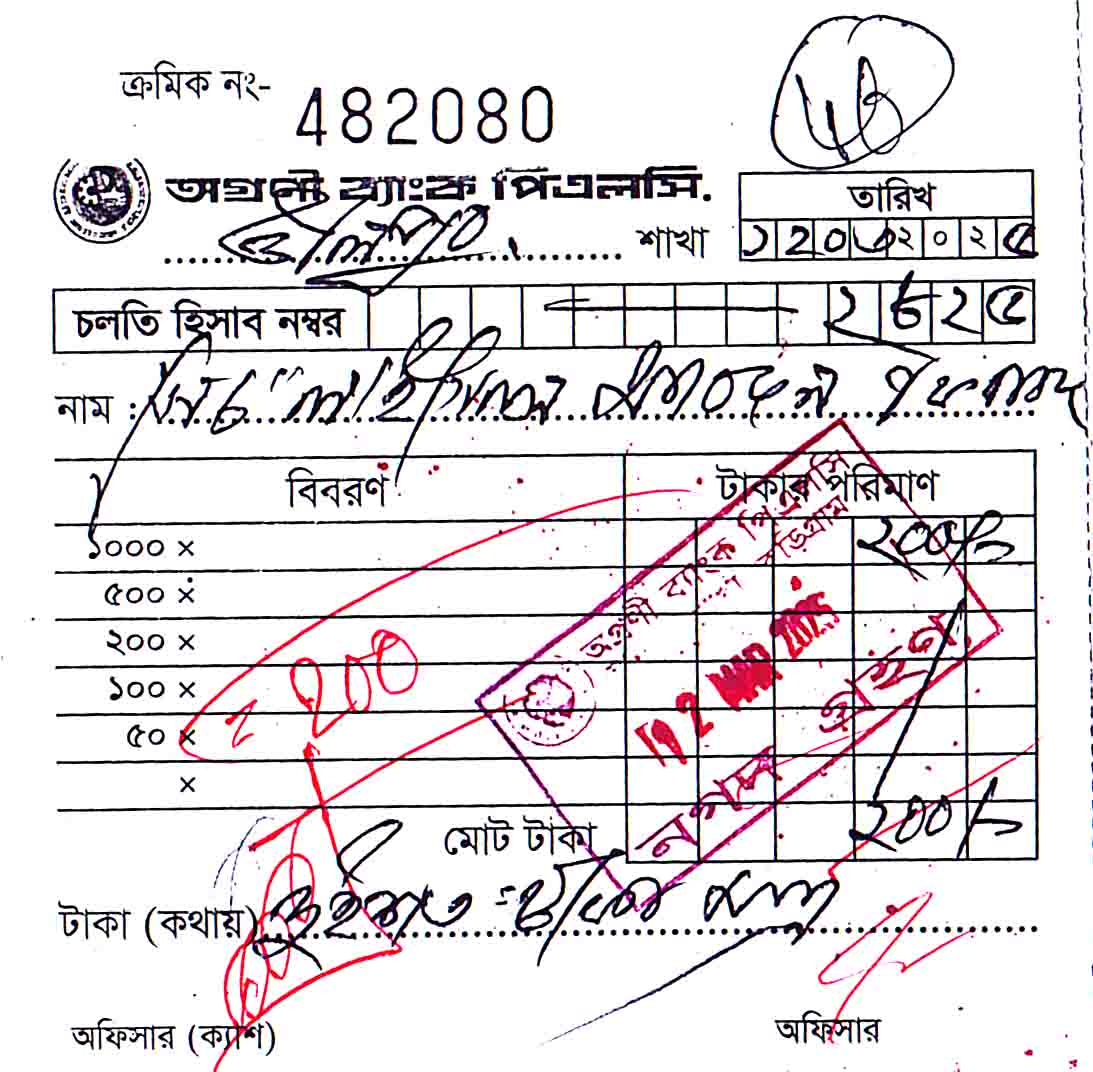 ক্রমিক নং-
482080
অগ্রণী ব্যাংক পিএলসি.
উলিপুর শাখা
তারিখ
১২০৩২০২৫
চলতি হিসাব নম্বর ২৮২৫
নাম :
বিবরণ টাকার পরিমাণ
১০০০ × ২০০/=
৫০০ ×
২০০ ×
১০০ ×
৫০ ×
×
= 200
অগ্রণী ব্যাংক পিএলসি
কুড়িগ্রাম
12 MAR 2025
নগদ গ্রহণ
মোট টাকা ২০০/=
টাকা (কথায়) দুইশত টাকা মাত্র
অফিসার (ক্যাশ) অফিসার